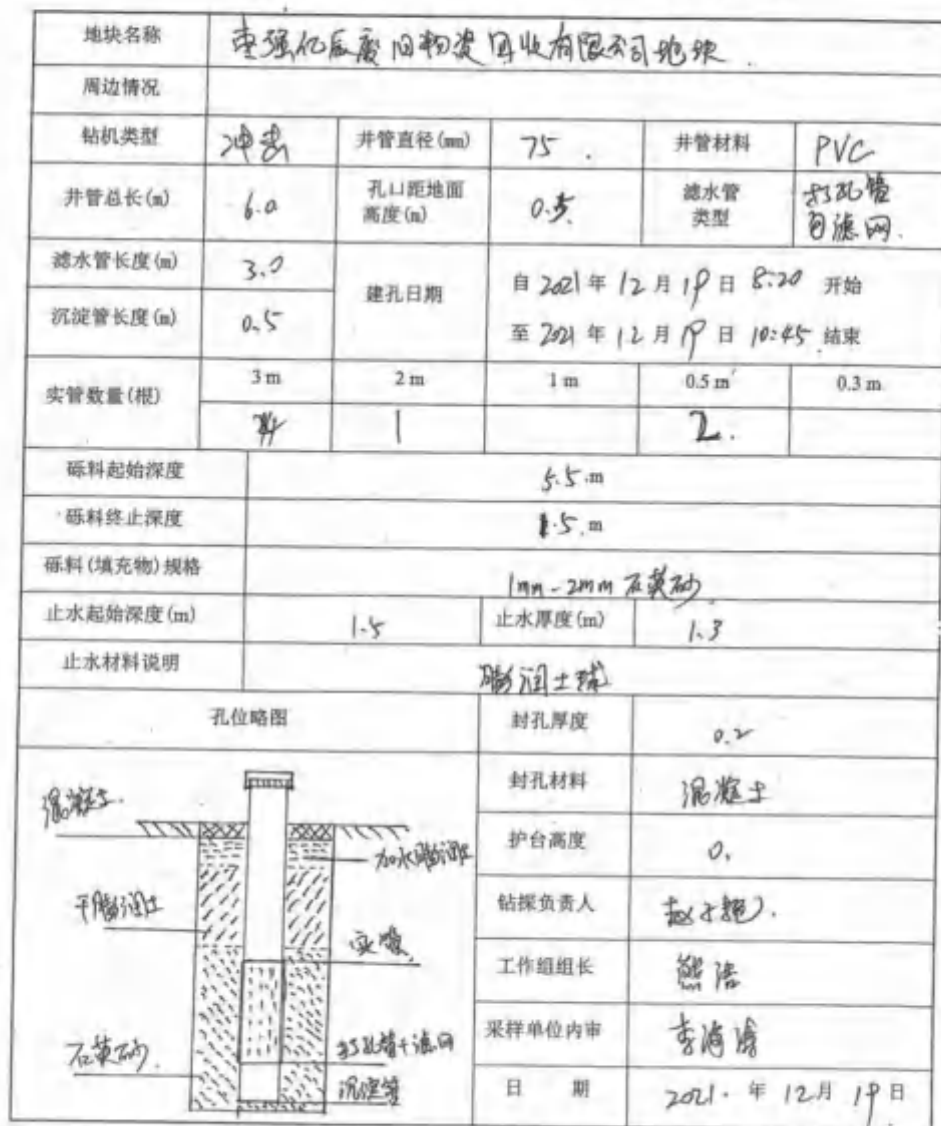 地块名称 枣强亿辰废旧物资回收有限公司地块.
周边情况
钻机类型 冲击 井管直径(mm) 75. 井管材料 PVC
井管总长(m) 6.0 孔口距地面高度(m) 0.5 滤水管类型 打孔管包滤网.
滤水管长度(m) 3.0 建孔日期 自 2021 年 12 月 19 日 8:20 开始
沉淀管长度(m) 0.5 至 2021 年 12 月 19 日 10:45 结束
实管数量(根) 3 m 2 m 1 m 0.5 m 0.3 m
1 2.
砾料起始深度 5.5 m
砾料终止深度 1.5 m
砾料(填充物)规格 1mm-2mm 石英砂
止水起始深度(m) 1.5 止水厚度(m) 1.3
止水材料说明 膨润土球
孔位略图 封孔厚度 0.2
混凝土. 封孔材料 混凝土
加水膨润土 护台高度 0.
干膨润土 钻探负责人
实管 工作组组长 熊浩
石英砂. 打孔管+滤网 采样单位内审 李海涛
沉淀管 日 期 2021. 年 12月 19 日